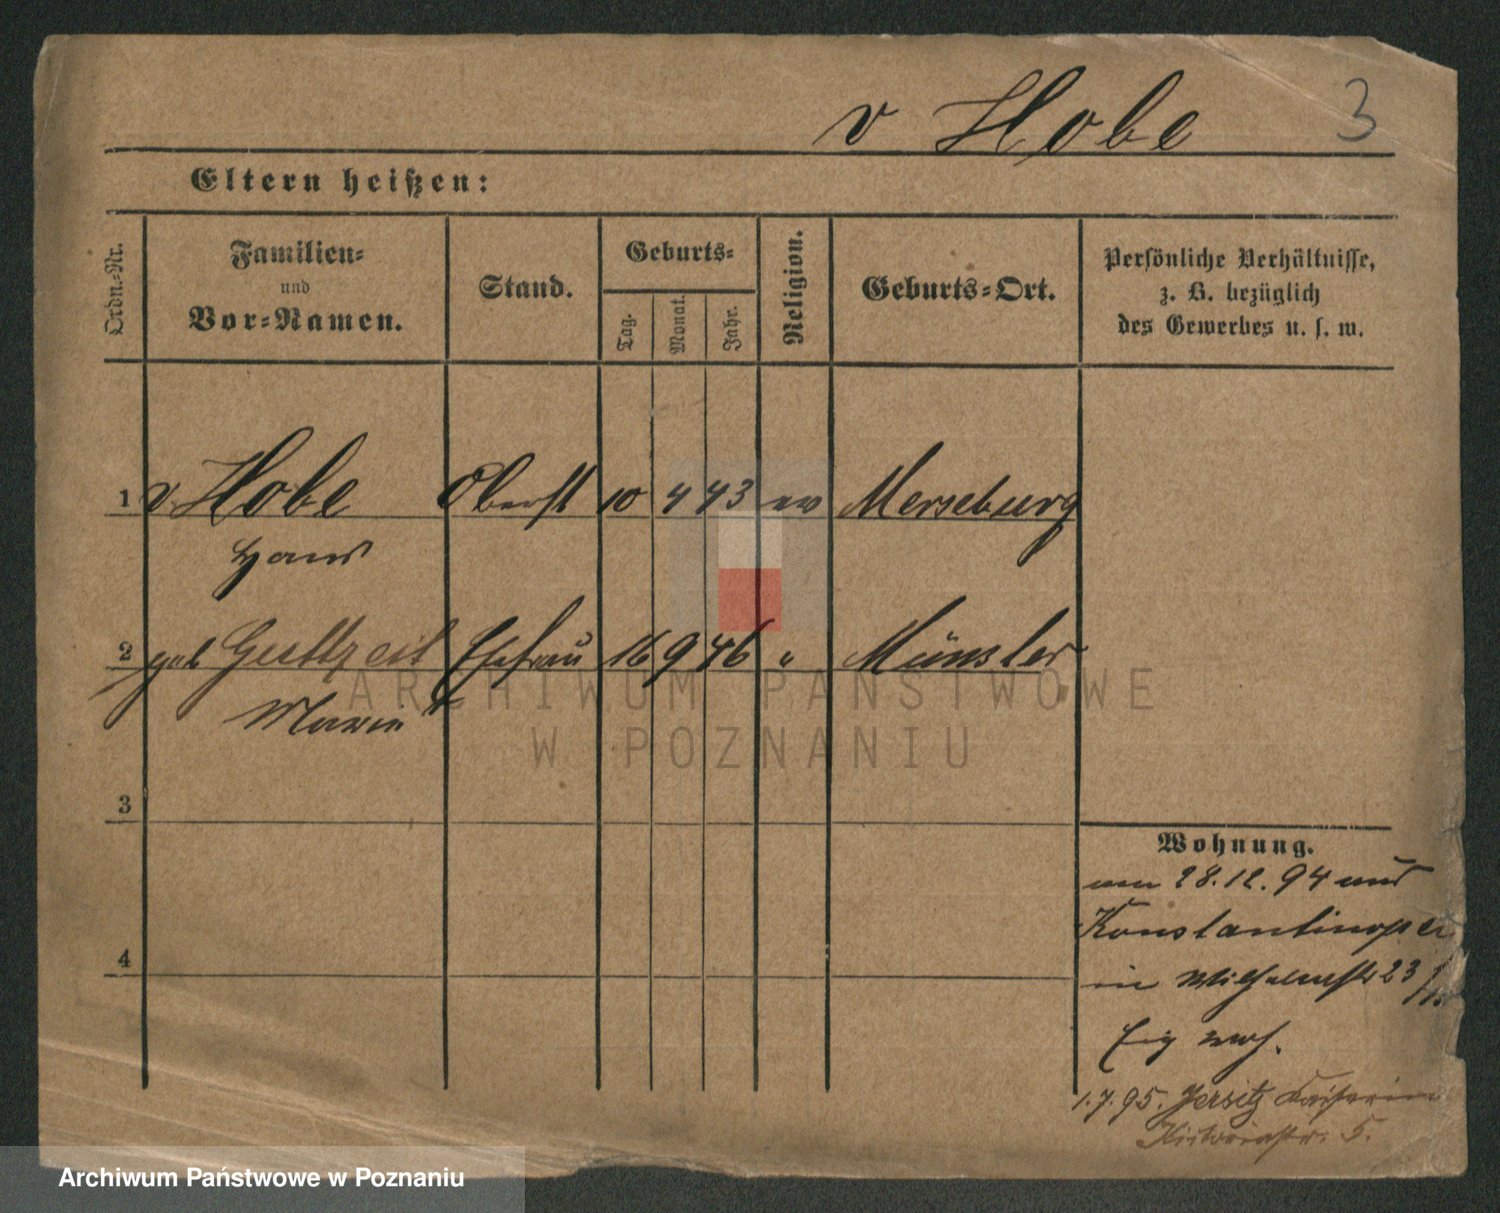 v Hobe 3
Eltern heißen:
Ordn.-Nr.
Familien-
und
Vor-Namen.
Stand.
Geburts-
Tag.
Monat.
Jahr.
Religion.
Geburts-Ort.
Persönliche Verhältnisse,
z. B. bezüglich
des Gewerbes u. s. w.
1 v Hobe Oberst 10 4 43 ev Merseburg
Hans
2 geb Ehefrau 16 9 46 " Münster
Marie
ARCHIWUM PAŃSTWOWE
W POZNANIU
3
Wohnung.
28.12.94 aus
Konstantinopel
in Wilhelmstr 23
4
Eig
1.7.95. Jersitz Kaiserin
Victoriastr. 5.
Archiwum Państwowe w Poznaniu